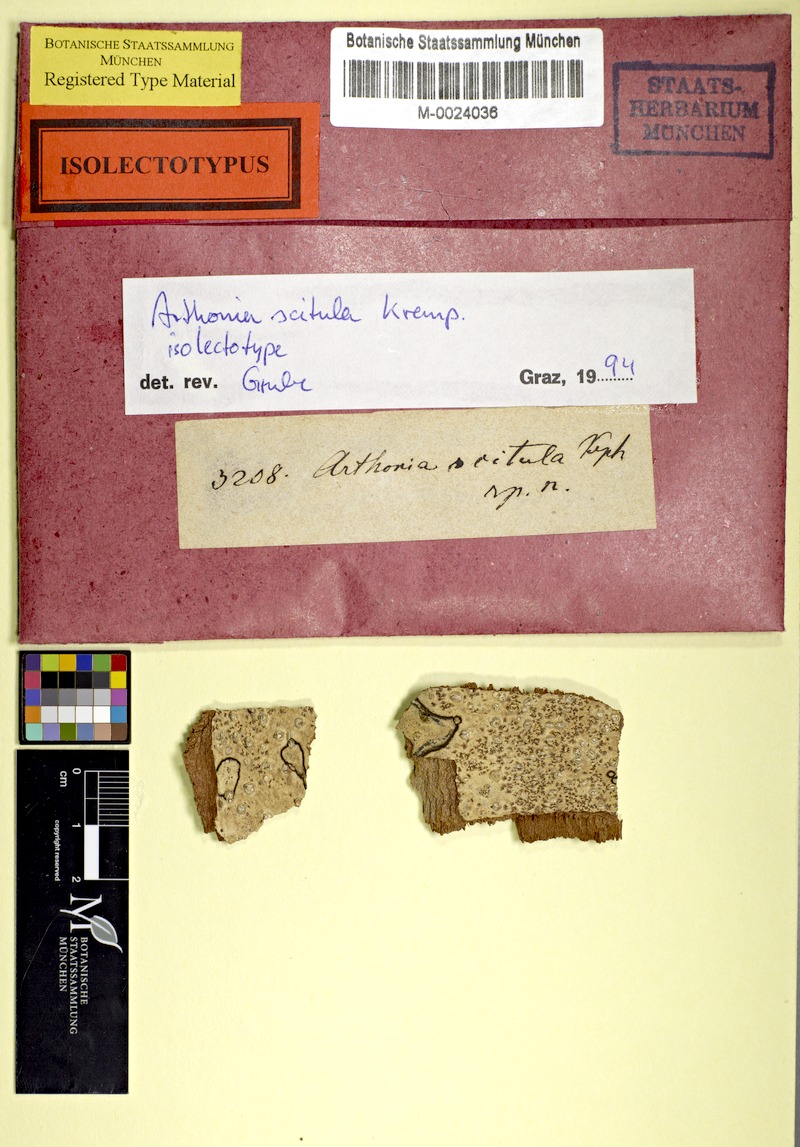 BOTANISCHE STAATSSAMMLUNG
MÜNCHEN
Registered Type Material
Botanische Staatssammlung München
M-0024036
STAATS-
HERBARIUM
MÜNCHEN
ISOLECTOTYPUS
Arthonia scitula Kremp.
isolectotype
det. rev. Grube
Graz, 1994
3208. Arthonia scitula Kph
sp. n.
0
cm
1
2
copyright reserved
M
BOTANISCHE
STAATSSAMMLUNG
MÜNCHEN